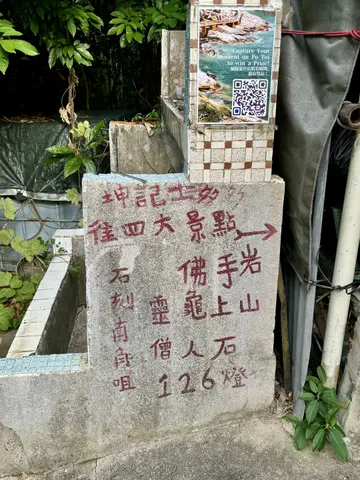 Capture Your
Moment on Po Toi
to win a Prize!
坤記士多
往四大景點→
佛手岩
靈龜上山
石刻南角咀
僧人石
126燈